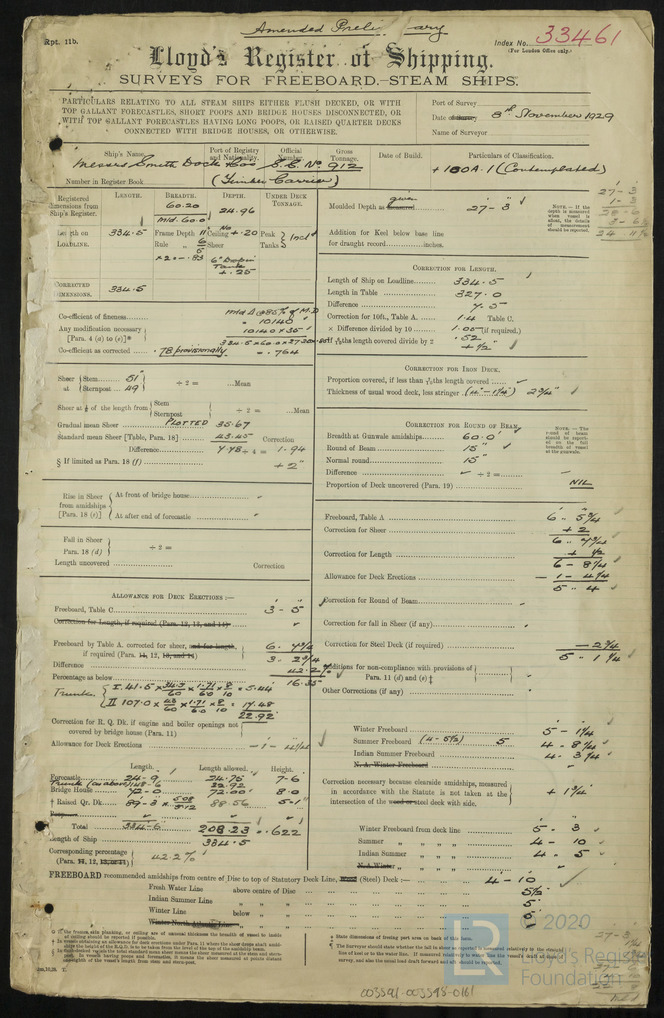 Amended Preliminary
Rpt. 11b.
Index No. 33461
(For London Office only.)
Lloyd's Register of Shipping.
SURVEYS FOR FREEBOARD.—STEAM SHIPS.
PARTICULARS RELATING TO ALL STEAM SHIPS EITHER FLUSH DECKED, OR WITH
TOP GALLANT FORECASTLES, SHORT POOPS AND BRIDGE HOUSES DISCONNECTED, OR
WITH TOP GALLANT FORECASTLES HAVING LONG POOPS, OR RAISED QUARTER DECKS
CONNECTED WITH BRIDGE HOUSES, OR OTHERWISE.
Port of Survey
Date of Survey 8th November 1929
Name of Surveyor
Ship's Name. Port of Registry and Nationality. Official Number. Gross Tonnage. Date of Build. Particulars of Classification.
Messrs Smith Dock Co's S.S. No 912
+100A.1 (Contemplated)
Number in Register Book (Timber Carrier)
LENGTH. BREADTH. DEPTH. UNDER DECK TONNAGE.
Registered dimensions from Ship's Register.
60.20
Mld. 60.0
24.96
Length on LOADLINE. 334.5
Frame Depth
Rule
Ceiling +.20
Sheer
Peak Tanks Incl
+.25
CORRECTED DIMENSIONS. 334.5
Moulded Depth as given 27-3
Addition for Keel below base line
for draught record inches.
NOTE.—If the depth is measured when vessel is afloat, the details of measurement should be reported.
27-3
1-3
Co-efficient of fineness
Any modification necessary
[Para. 4 (a) to (e)]*
Co-efficient as corrected .78 provisionally .764
CORRECTION FOR LENGTH.
Length of Ship on Loadline 334.5
Length in Table 327.0
Difference 7.5
Correction for 10ft., Table A. 1.4 Table C.
× Difference divided by 10 1.05 (if required).
If 6/10ths length covered divide by 2 .52
+½"
CORRECTION FOR IRON DECK.
Proportion covered, if less than 7/10ths length covered
Thickness of usual wood deck, less stringer (4"-1¼") 2¾"
Sheer at Stem 51" Sternpost 49 ÷ 2 = Mean
Sheer at ⅛ of the length from Stem Sternpost ÷ 2 = Mean
Gradual mean Sheer PLOTTED 35.67
Standard mean Sheer [Table, Para. 18] 43.45 Correction
Difference 7.78 ÷ 4 = 1.94
§ If limited as Para. 18 (f) +2"
CORRECTION FOR ROUND OF BEAM.
Breadth at Gunwale amidships 60.0
Round of Beam 15"
Normal round 15"
Difference ÷ 2 =
Proportion of Deck uncovered (Para. 19) NIL
Rise in Sheer from amidships [Para. 18 (e)]
At front of bridge house
At after end of forecastle
Fall in Sheer Para. 18 (d) ÷ 2 =
Length uncovered Correction
Freeboard, Table A 6.. 5¾
Correction for Sheer +2
6.. 7¾
Correction for Length +½
6-8¼
Allowance for Deck Erections -1-4¼
5.. 4
Correction for Round of Beam
Correction for fall in Sheer (if any)
Correction for Steel Deck (if required) -2¾
5-1¼
Additions for non-compliance with provisions of
Para. 11 (d) and (e) ‡
Other Corrections (if any)
ALLOWANCE FOR DECK ERECTIONS:—
Freeboard, Table C 3-5
Correction for Length, if required (Para. 12, 13, and 14)
Freeboard by Table A. corrected for sheer, and for length,
if required (Para. 11, 12, 13, and 14) 6. 7¾
Difference 3. 2¾
Percentage as below 42.2%
16.35
Trunk I. 41.5 × 34.3/60 × 1.71/6.0 × 8/10 = 5.44
II 107.0 × 43/60 × 1.71/6.0 × 8/10 = 17.48
22.92
Correction for R. Q. Dk. if engine and boiler openings not
covered by bridge (Para. 11)
Allowance for Deck Erections -1-4¼
Winter Freeboard 5-1¼
Summer Freeboard (4-5½) 5 4-8¼
Indian Summer Freeboard 4-3¼
N. A. Winter Freeboard
Correction necessary because clearside amidships, measured
in accordance with the Statute is not taken at the
intersection of the wood or steel deck with side. +1¾"
Length. Length allowed. Height.
Forecastle 24-9 24.75 7-6
Trunk (as above) 148-6 22.92
Bridge House 72-0 72.00 8.0
† Raised Qr. Dk. 89-3 88.56 5-1
Poop
Total 334-6 208.23 = .622
Length of Ship 334.5
Corresponding percentage
(Para. 11, 12, 13, or 14) 42.2%
Winter Freeboard from deck line 5. 3
Summer 4-10
Indian Summer 4. 5
N. A. Winter
FREEBOARD recommended amidships from centre of Disc to top of Statutory Deck Line, Wood (Steel) Deck:— 4-10
Fresh Water Line above centre of Disc 5½
Indian Summer Line 5
Winter Line below 5
Winter North Atlantic Line
© 2020
Lloyd's Register
Foundation
003591-003598-0161